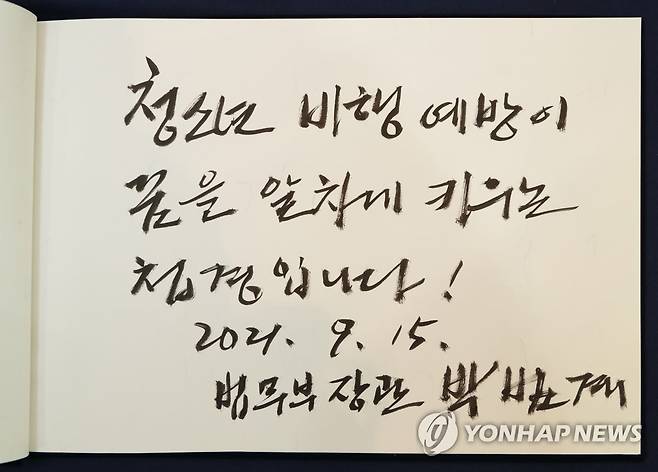 청소년 비행 예방이
꿈을 알차게 키우는
첩경입니다!
2021. 9. 15.
법무부장관 박범계
YONHAP NEWS